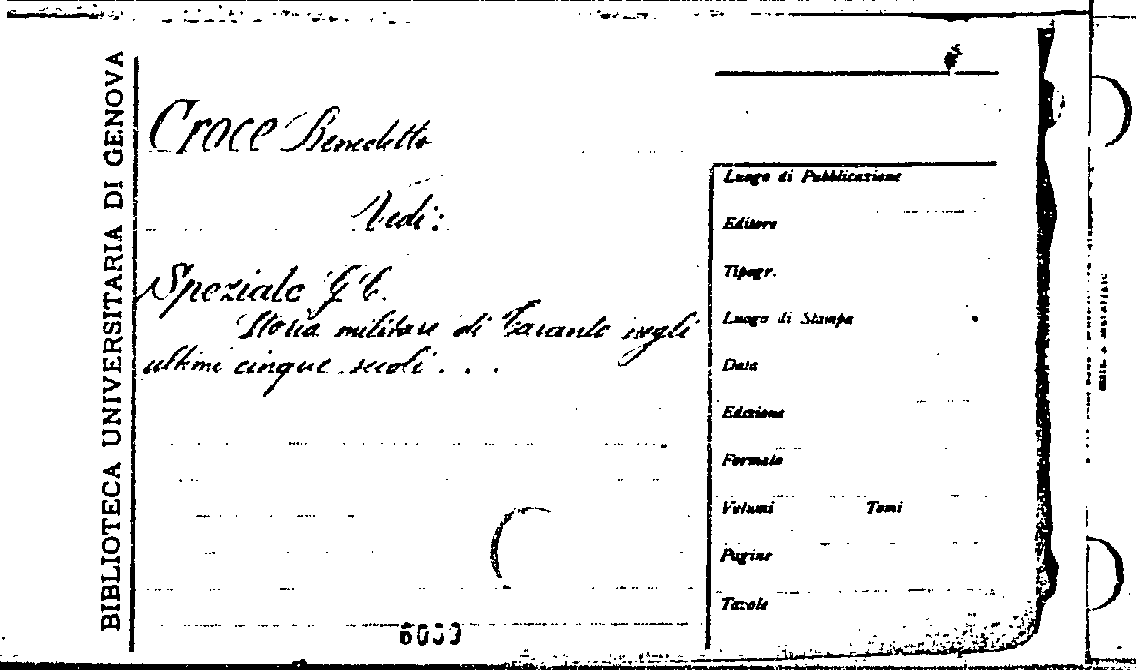 BIBLIOTECA UNIVERSITARIA DI GENOVA
Croce Benedetto
Vedi:
Speziale G C.
Storia militare di Taranto negli
ultimi cinque secoli . . .
Luogo di Pubblicazione
Editore
Tipogr.
Luogo di Stampa
Data
Edizione
Formato
Volumi Tomi
Pagine
Tavole